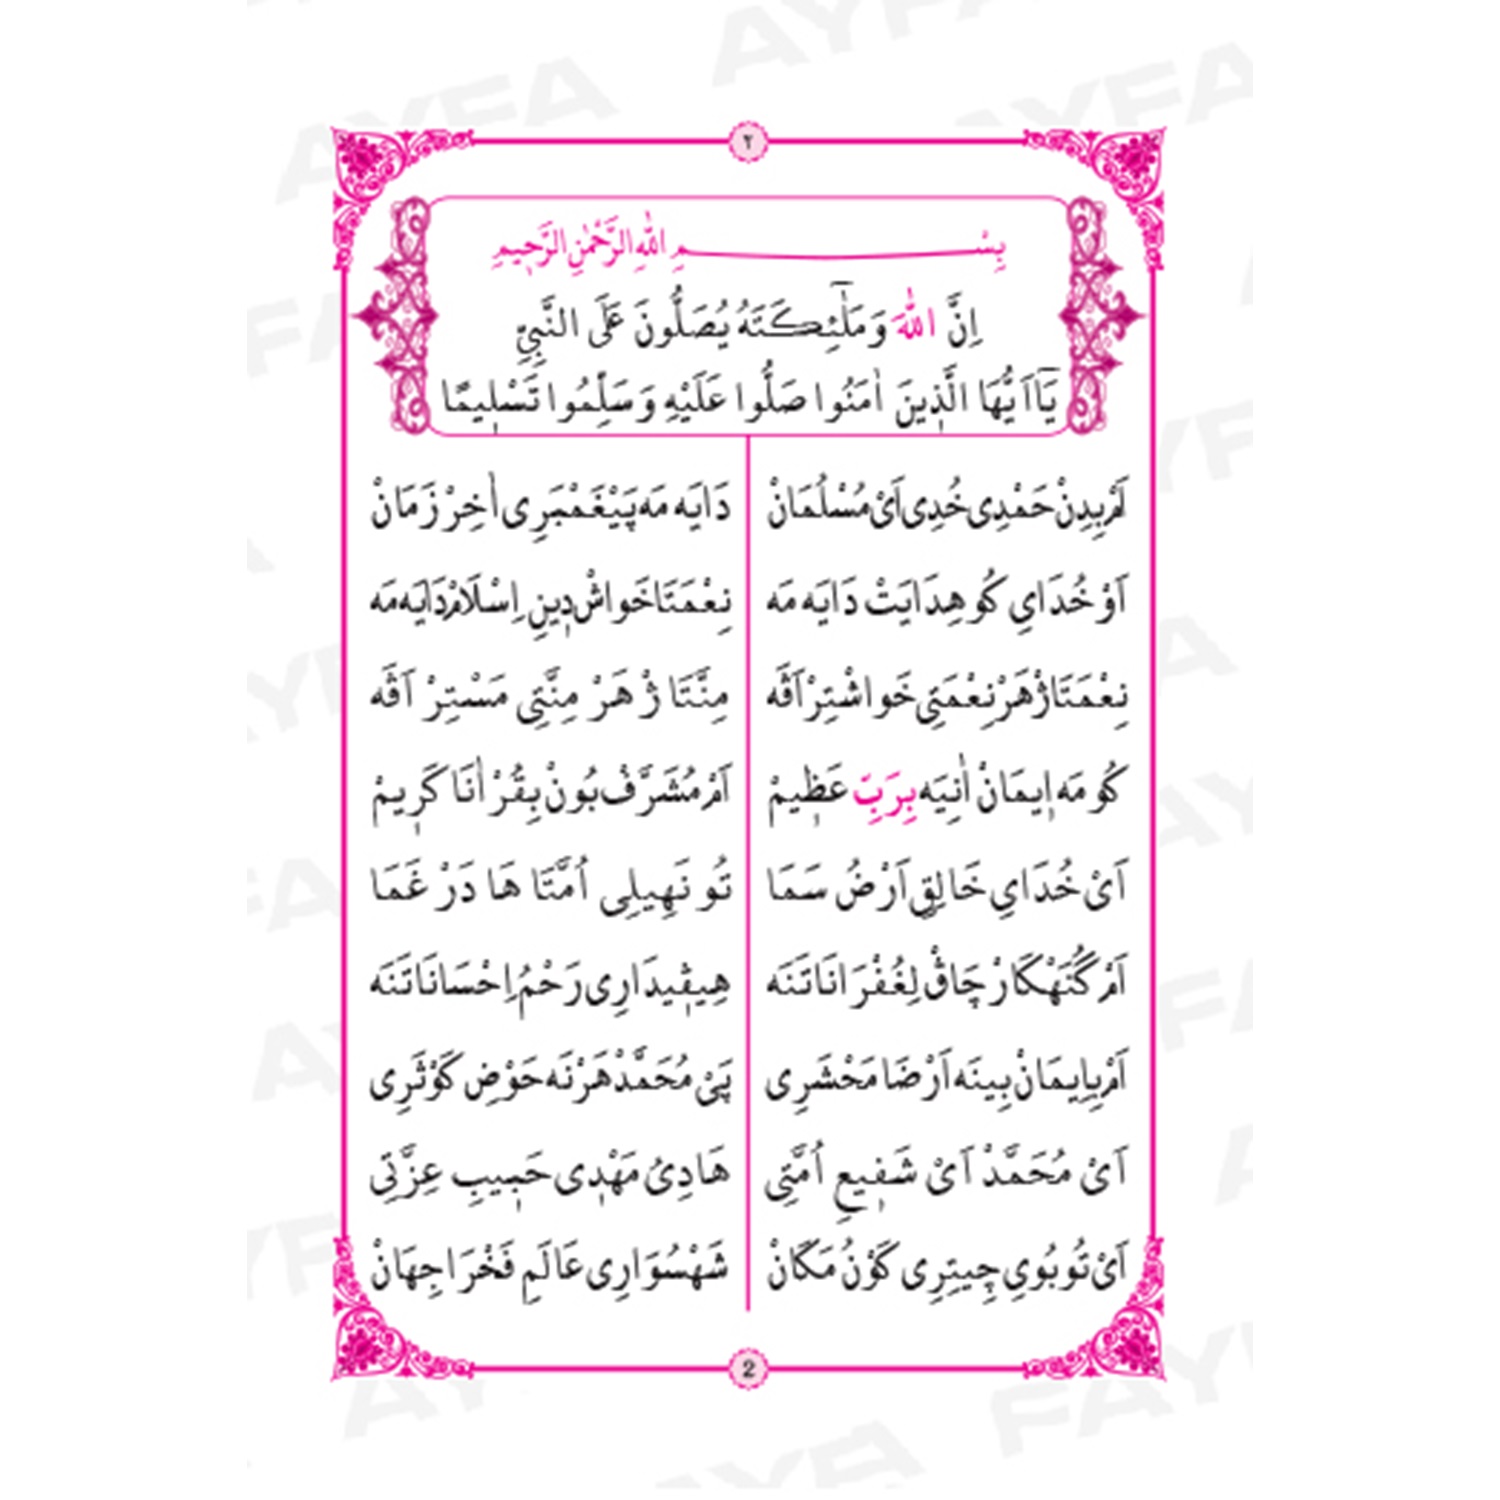 ٢
بِسْــــــمِ اللّٰهِ الرَّحْمٰنِ الرَّحٖيمِ
اِنَّ اللّٰهَ وَمَلٰٓئِكَتَهُ يُصَلُّونَ عَلَى النَّبِيِّ
يَٓا اَيُّهَا الَّذٖينَ اٰمَنُوا صَلُّوا عَلَيْهِ وَسَلِّمُوا تَسْلٖيمًا
اَمْ بِدِنْ حَمْدِى خُدِى اَىْ مُسْلُمَانْ دَايَه مَه پَيْغَمْبَرِى اٰخِرْ زَمَانْ
اَوْ خُدَاىِ كُو هِدَايَتْ دَايَه مَه نِعْمَتَا خَواشْ دٖينِ اِسْلَامْ دَايَه مَه
نِعْمَتَا ژْ هَرْ نِعْمَتِى خَواشْتِرْ اَڤَه مِنَّتَا ژْ هَرْ مِنَّتِى مَسْتِرْ اَڤَه
كُو مَه اٖيمَانْ اٰنِيَه بِرَبِّ عَظٖيمْ اَمْ مُشَرَّفْ بُونْ بِقُرْاٰنَا كَرٖيمْ
اَىْ خُدَاىِ خَالِقِ اَرْضُ سَمَا تُو نَهِيلِى اُمَّتَا هَا دَرْ غَمَا
اَمْ گُنَهْكَارْ چَاڤْ لِغُفْرَانَا تَنَه هِيڤٖيدَارِى رَحْمُ اِحْسَانَا تَنَه
اَمْ بِاِيمَانْ بِينَه اَرْضَا مَحْشَرِى پَىْ مُحَمَّدْ هَرْنَه حَوْضِ كَوْثَرِى
اَىْ مُحَمَّدْ اَىْ شَفٖيعِ اُمَّتِى هَادِىُ مَهْدٖى حَبٖيبِ عِزَّتِى
اَىْ تُو بُوىِ چِيتِرِى كَوْنُ مَكَانْ شَهْسُوَارِى عَالَمِ فَخْرَا جِهَانْ
2
AYFA